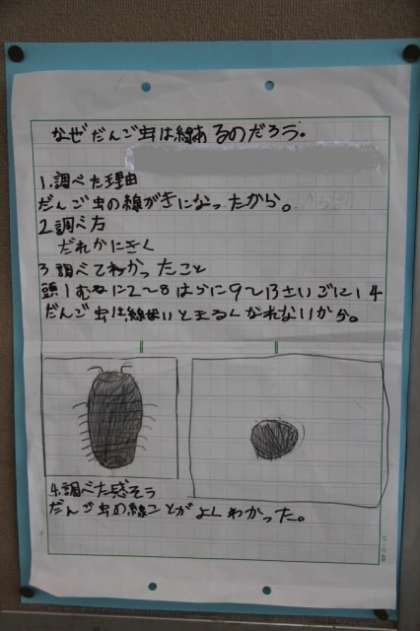 なぜだんご虫は線あるのだろう。
1.調べた理由
だんご虫の線がきになったから。
2.調べ方
だれかにきく
3.調べてわかったこと
頭1むねに2〜8はらに9〜13さいごに14
だんご虫は線ないとまるくなれないから。
4.調べた感そう
だんご虫の線ことがよくわかった。